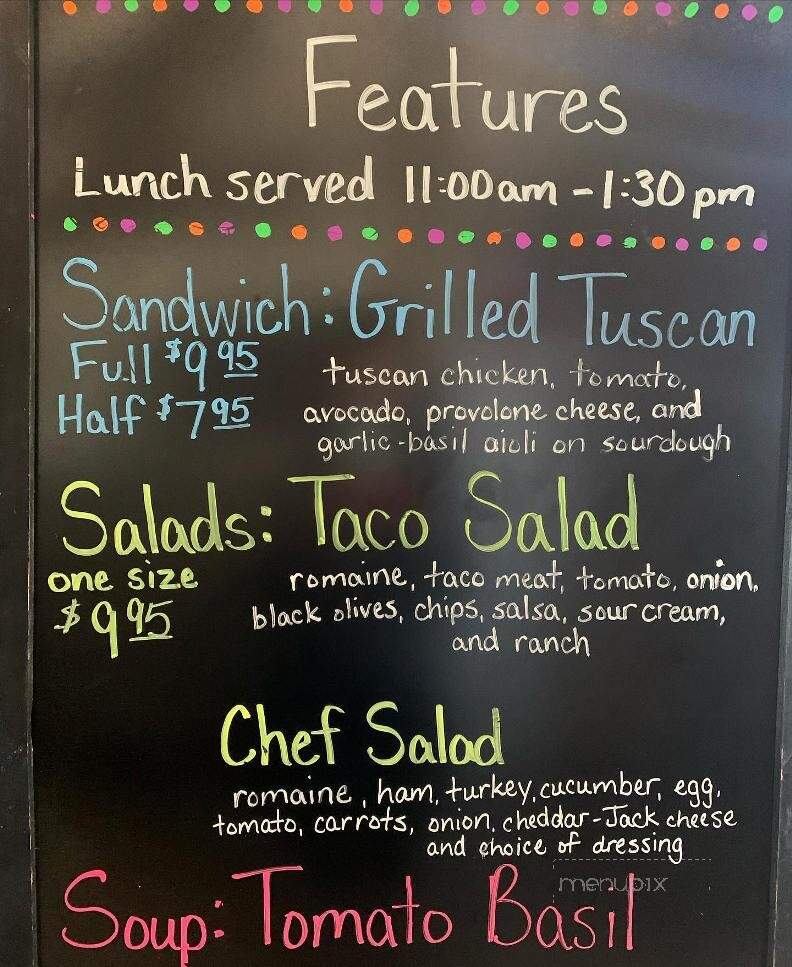 Features
Lunch served 11:00am - 1:30pm
Sandwich: Grilled Tuscan
Full $9 95
Half $7 95
tuscan chicken, tomato,
avocado, provolone cheese, and
garlic-basil aioli on sourdough
Salads: Taco Salad
one size
$9 95
romaine, taco meat, tomato, onion,
black olives, chips, salsa, sour cream,
and ranch
Chef Salad
romaine, ham, turkey, cucumber, egg,
tomato, carrots, onion, cheddar-Jack cheese
and choice of dressing
menupix
Soup: Tomato Basil